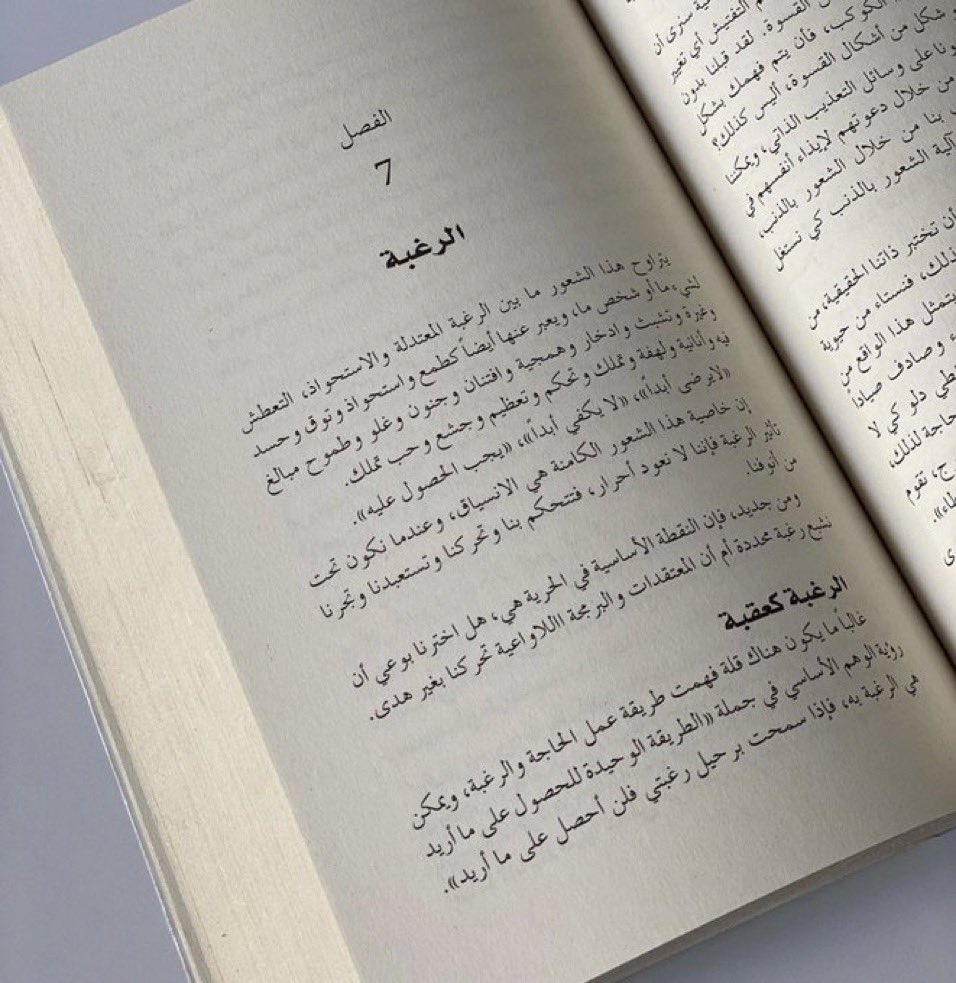 سنرى أن
التفتش أي تعبير
القسوة. لقد قبلنا بدون
الكوكب، فأن يتم فهمك بشكل
شكل من أشكال القسوة، أليس كذلك؟
على وسائل التعذيب الذاتي، ويمكننا
من خلال دعوتهم لإيذاء أنفسهم في
بنا من خلال الشعور بالذنب،
آلية الشعور بالذنب كي نستغل
أن تختبر ذاتنا الحقيقية، من
ذلك، فنستاء من حيوية
يتمثل هذا الواقع من
وصادف صياداً
دلو كي لا
حاجة لذلك،
تقوم
الفصل
7
الرغبة
يتراوح هذا الشعور ما بين الرغبة المعتدلة والاستحواذ، التعطش
لشيء ما أو شخص ما، ويعبر عنها أيضاً كطمع واستحواذ وتوق وحسد
وغيرة وتشبث وادخار وهمجية وافتنان وجنون وغلو وطموح مبالغ
فيه وأنانية ولهفة وتملك وتحكم وتعظيم وجشع وحب تملك.
«لايرضى أبداً»، «لا يكفي أبداً»، «يجب الحصول عليه».
إن خاصية هذا الشعور الكامنة هي الانسياق، وعندما نكون تحت
تأثير الرغبة فإننا لا نعود أحرار، فتتحكم بنا وتحركنا وتستعبدنا وتجرنا
من أنوفنا.
ومن جديد، فإن النقطة الأساسية في الحرية هي، هل اخترنا بوعي أن
نشبع رغبة محددة أم أن المعتقدات والبرمجة اللاواعية تحركنا بغير هدى.
الرغبة كعقبة
غالباً ما يكون هناك قلة فهمت طريقة عمل الحاجة والرغبة، ويمكن
رؤية الوهم الأساسي في جملة «الطريقة الوحيدة للحصول على ما أريد
هي الرغبة به، فإذا سمحت برحيل رغبتي فلن أحصل على ما أريد».